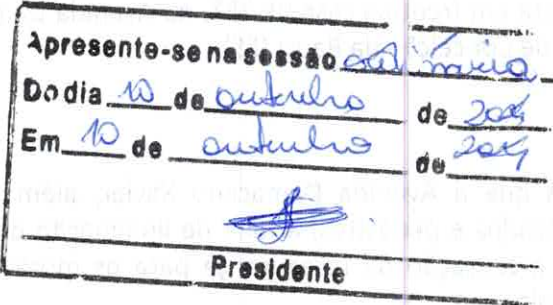 Apresente-se na sessão ordinária
Do dia 10 de outubro de
Em 10 de outubro de
Presidente